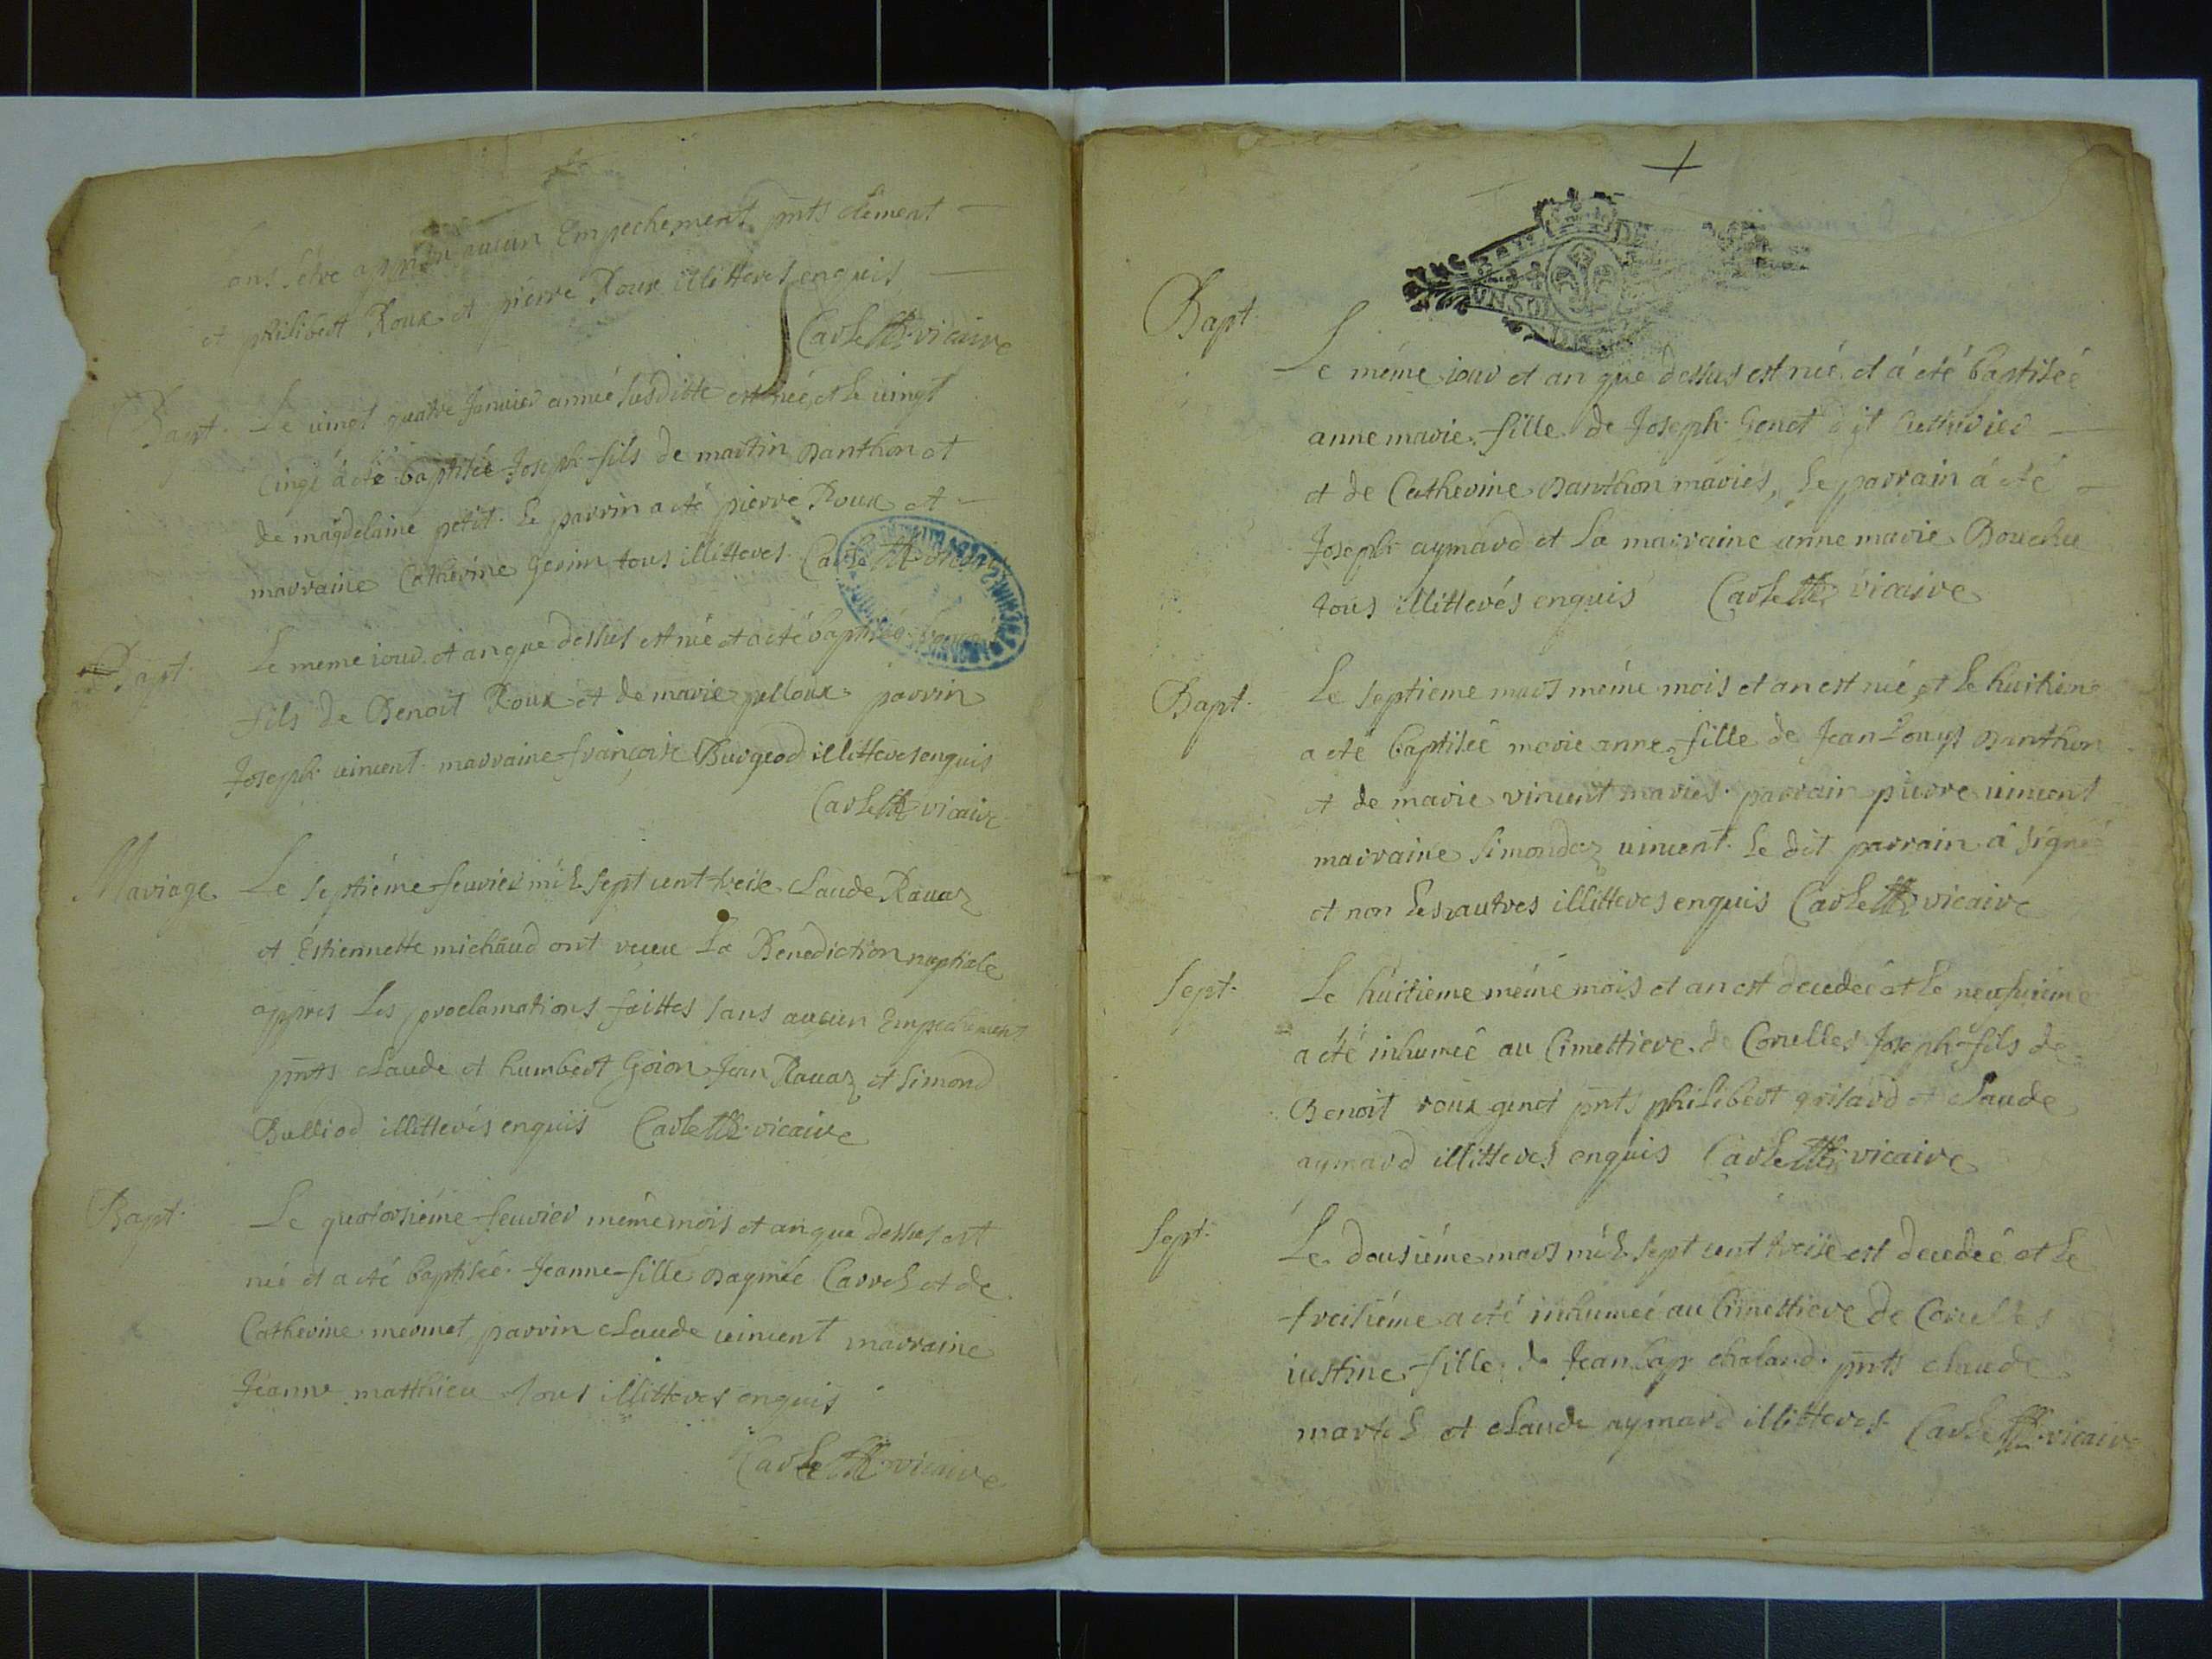 ons Selve apprendu aucun Empechement pnts clement
et philibert Roux et pierre Roux illitteres enquis
Carlette vicaire
Bapt. Le vingt quatre Januier année susditte est née, et le vingt
cinqe à été baptisée Joseph fils de martin Danthon et
de magdelaine petit. Le parrin a eté pierre Roux et
marraine Catherine Gerin tous illitteres Carlette
Bapt. Le meme iour et an que dessus est née et a eté baptisée
fils de Benoit Roux et de marie pelloux parrin
Joseph uincent marraine françoise Burgeod illitteres enquis
Carlette vicaire
Mariage Le septiéme feuvrier mil sept cent treise Claude Rauaz
et Estiennette michaud ont receu La Benediction nuptiale
appres Les proclamations faittes sans aucun Empechement
pnts claude et humbert Goion Jean Rauaz et Simond
Bulliod illitterés enquis Carlette vicaire
Bapt. Le quatorsiéme feuvrier même mois et an que dessus est
née et a eté baptisée Jeanne fille Daymée Carrel et de
Catherine mermet parrin claude uincent marraine
Jeanne matthieu tous illitteres enquis
Carlette vicaire
VN SOL
Bapt Le même iour et an que dessus est née et à eté baptisée
anne marie fille de Joseph Genet dit
et de Catherine Danthon mariés, Le parrain à eté
Joseph aymard et La marraine anne marie Bouchu
tous illitterés enquis Carlette vicaire
Bapt. Le septieme mars même mois et an est née et Le huitiene
a eté baptisée marie anne fille de Jean Louys Danthon
et de marie vincent mariés parrain pierre uincent
marraine Simondaz uincent Le dit parrain à signé
et non Les autres illitteres enquis Carlette vicaire
Sept. Le huitieme même mois et an est decedeé et Le neufuieme
a été inhumeé au Cimettiere de Coruelles Joseph fils de
Benoit roux genet pnts philibert grisard et claude
aymard illitteres enquis Carlette vicaire
Sept. Le dousiéme mars mil sept cent treise est decedeé et Le
treisiéme a eté inhumeé au Cimettiere de Coruelles
iustine fille de Jean bap chaland pnts claude
martel et claude aymard illitteres Carlette vicaire